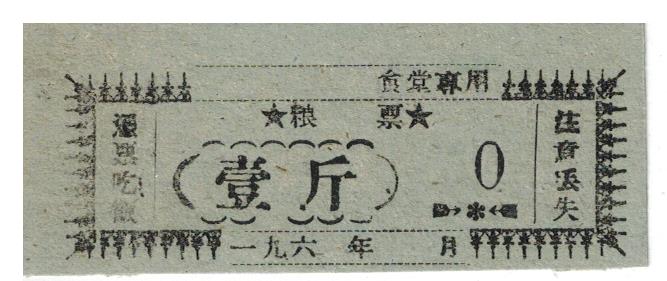 食堂專用
★粮 票★
凭票吃飯
壹斤
0
注意丟失
一九六 年 月